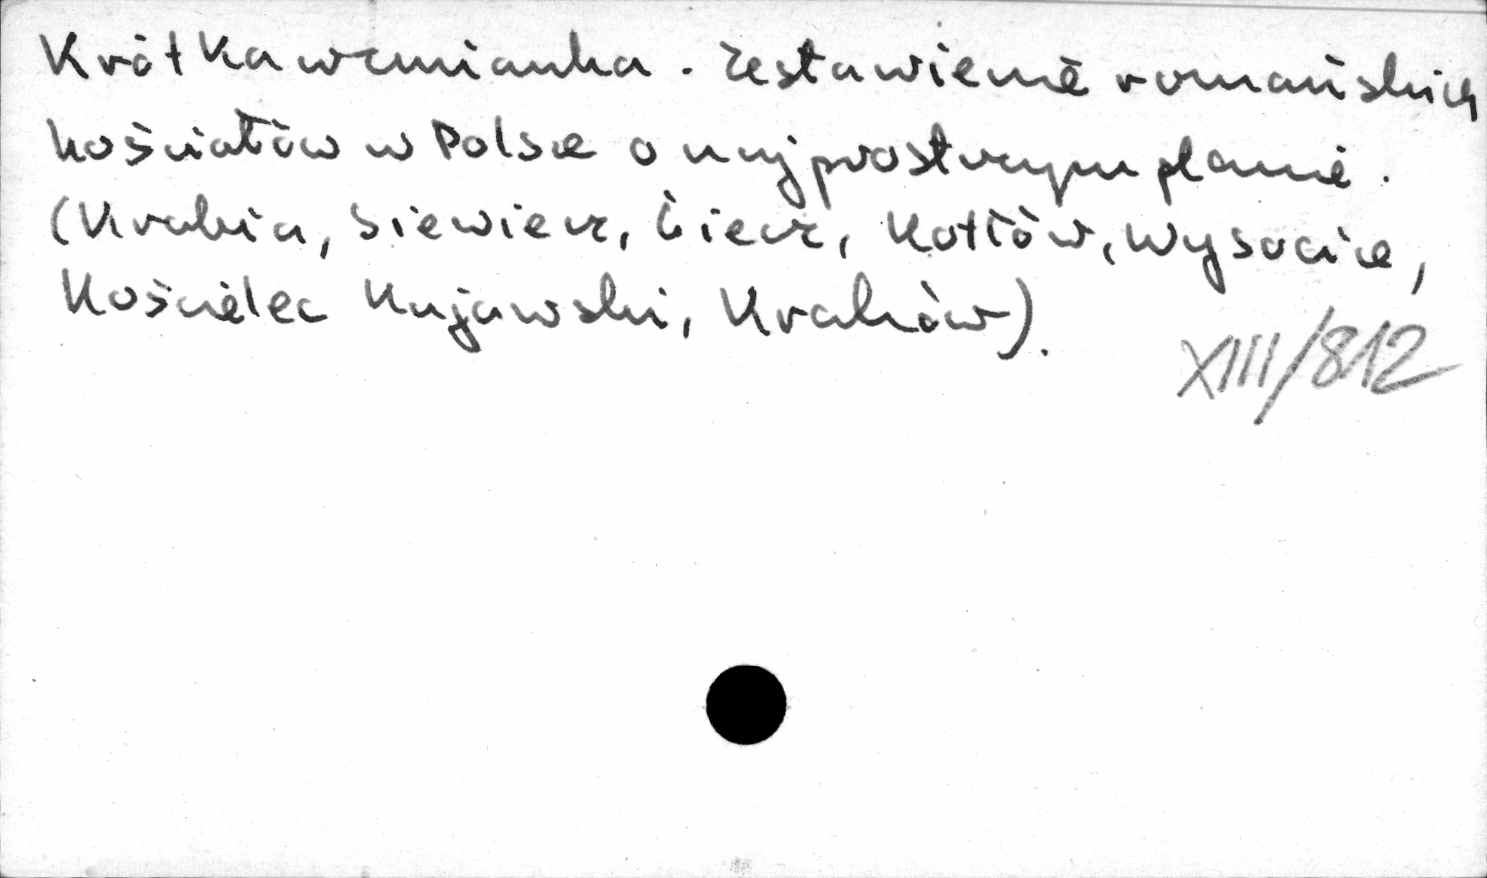 Krótka wzmianka. Zestawienie romańskich
kościołów w Polsce o najprostszym planie.
(Krobia, Siewierz, Giecz, Kotłów, Wysocice,
Kościelec Kujawski, Kraków).
XIII/812